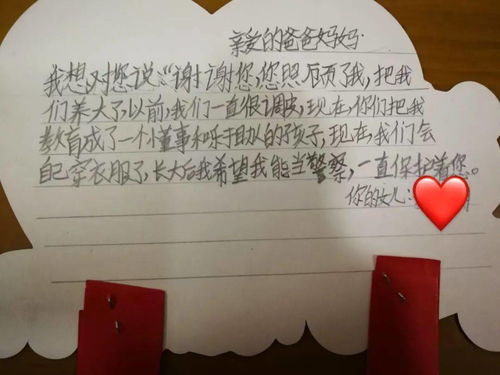 亲爱的爸爸妈妈:
我想对您说:“谢谢您,您照顾了我,把我
们养大了,以前,我们一直很调皮,现在,你们把我
教育成了一个懂事和乐于助人的好孩子,现在,我们会
自己穿衣服了,长大后我希望我能当警察,一直保护着您。
你的女儿: